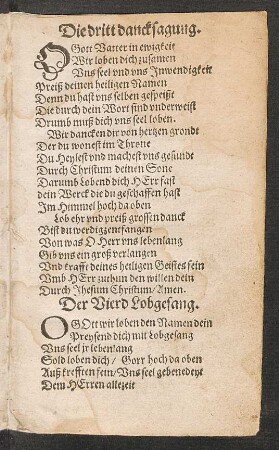 Die dritt dancksagung.
O Gott Vatter in ewigkeit
Wir loben dich zusamen
Vns seel vnd vns Inwendigkeit
Preiß deinen heiligen Namen
Denn du hast vns selben gespeißt
Die durch dein Wort sind vnderweist
Drumb muß dich vns seel loben.
Wir dancken dir von hertzen grondt
Der du wonest im Throne
Du Heylest vnd machest vns gesundt
Durch Christum deinen Sone
Darumb Lobend dich HErr fast
dein Werck die du geschaffen hast
Im Himmel hoch da oben
Lob ehr vnd preiß grossen danck
Bist du werdig zentfangen
Von was O Herr vns lebenlang
Gib vns ein groß verlangen
Vnd krafft deines heiligen Geistes fein
Vmb HErr zuthun den willen dein
Durch Jhesum Christum / Amen.
Der Vierd Lobgesang.
O GOtt wir loben den Namen dein
Preysend dich mit Lobgesang
Vns seel jr lebenlang
Sold loben dich / Gott hoch da oben
Auß krefften sein / Vns seel gebenedeyt
Dem HErren allezeit